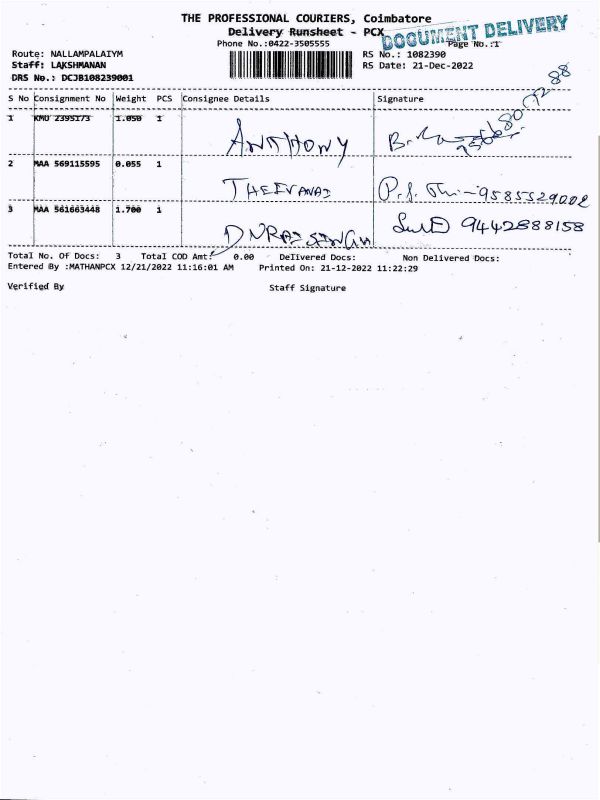 THE PROFESSIONAL COURIERS, Coimbatore
Delivery Runsheet - PCX
DOCUMENT DELIVERY
Phone No.:0422-3505555 Page No.:1
Route: NALLAMPALAIYM RS No.: 1082390
Staff: LAKSHMANAN RS Date: 21-Dec-2022
DRS No.: DCJB108239001
S No Consignment No Weight PCS Consignee Details Signature
1 KMU 2395173 1.050 1 ANTHONY
2 MAA 569115595 0.055 1 THEEVANAI 9585529002
3 MAA 561663448 1.700 1 DNRAISINGH 9442888158
Total No. Of Docs: 3 Total COD Amt: 0.00 Delivered Docs: Non Delivered Docs:
Entered By :MATHANPCX 12/21/2022 11:16:01 AM Printed On: 21-12-2022 11:22:29
Verified By Staff Signature